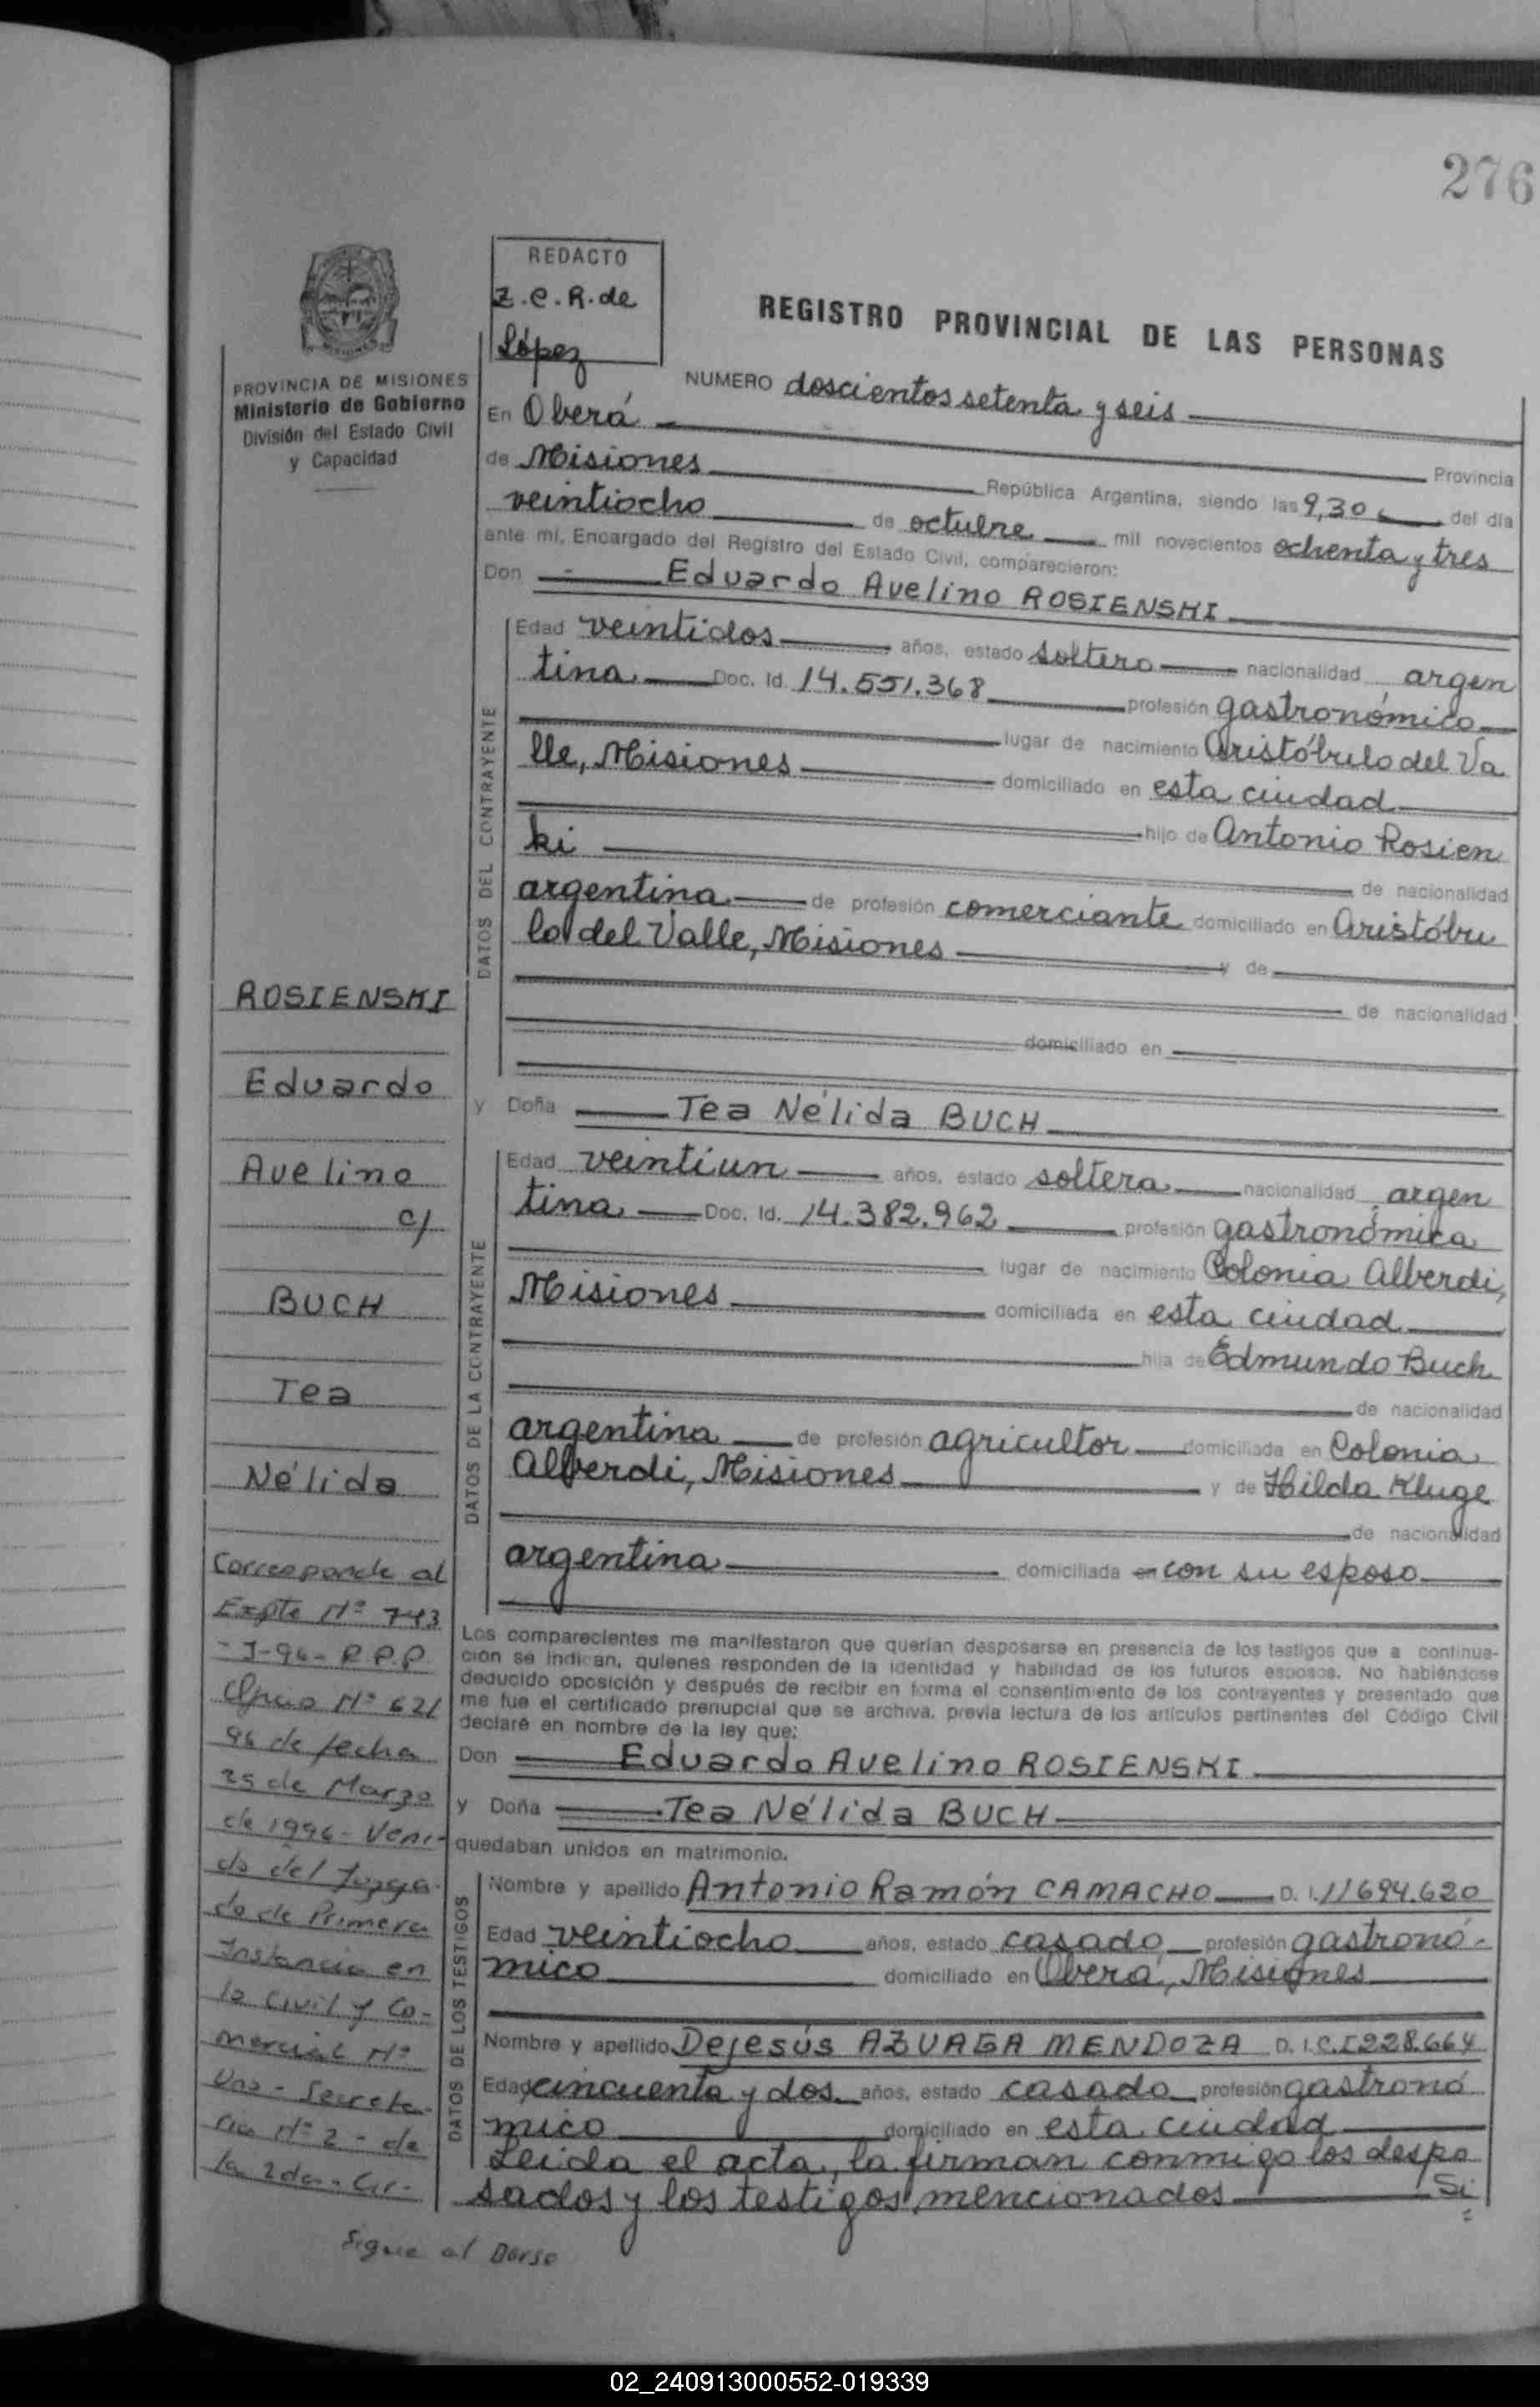 276
REDACTO
Z.C.R. de
López
REGISTRO PROVINCIAL DE LAS PERSONAS
PROVINCIA DE MISIONES
Ministerio de Gobierno
División del Estado Civil
y Capacidad
NUMERO doscientos setenta y seis
En Oberá
Provincia
de Misiones República Argentina, siendo las 9,30 del día
veintiocho de octubre mil novecientos ochenta y tres
ante mí, Encargado del Registro del Estado Civil, comparecieron:
Don Eduardo Avelino ROSIENSKI
DATOS DEL CONTRAYENTE
Edad veintidos años, estado soltero nacionalidad argen
tina Doc. Id. 14.551.368 profesión gastronómico
lugar de nacimiento Aristóbulo del Va
lle, Misiones domiciliado en esta ciudad
hijo de Antonio Rosien
ki de nacionalidad
argentina de profesión comerciante domiciliado en Aristóbu
lo del Valle, Misiones y de
de nacionalidad
domiciliado en
y Doña Tea Nélida BUCH
DATOS DE LA CONTRAYENTE
Edad veintiun años, estado soltera nacionalidad argen
tina Doc. Id. 14.382.962 profesión gastronómica
lugar de nacimiento Colonia Alberdi,
Misiones domiciliada en esta ciudad
hija de Edmundo Buch
de nacionalidad
argentina de profesión agricultor domiciliada en Colonia
Alberdi, Misiones y de Hilda Kluge
de nacionalidad
argentina domiciliada en con su esposo
Los comparecientes me manifestaron que querían desposarse en presencia de los testigos que a continua-
ción se indican, quienes responden de la identidad y habilidad de los futuros esposos. No habiéndose
deducido oposición y después de recibir en forma el consentimiento de los contrayentes y presentado que
me fue el certificado prenupcial que se archiva, previa lectura de los artículos pertinentes del Código Civil
declaré en nombre de la ley que:
Don Eduardo Avelino ROSIENSKI
y Doña Tea Nélida BUCH
quedaban unidos en matrimonio.
DATOS DE LOS TESTIGOS
Nombre y apellido Antonio Ramón CAMACHO D. I. 11694.620
Edad veintiocho años, estado casado profesión gastronó-
mico domiciliado en Oberá, Misiones
Nombre y apellido Dejesús AZUAGA MENDOZA D. I. C.I 228.664
Edad cincuenta y dos años, estado casado profesión gastronó
mico domiciliado en esta ciudad
Leida el acta, la firman conmigo los despo
sados y los testigos mencionados Si
ROSIENSKI
Eduardo
Avelino
c/
BUCH
Tea
Nélida
Corresponde al
Expte Nº 743
-J-96- R.P.P.
Nº 621
96 de fecha
25 de Marzo
de 1996- Veni-
do del Juzga-
do de Primera
Instancia en
lo Civil y Co-
mercial Nº
Uno - Secreta-
ria Nº 2 - de
la 2da. Cir-
Sigue al Dorso
02_240913000552-019339